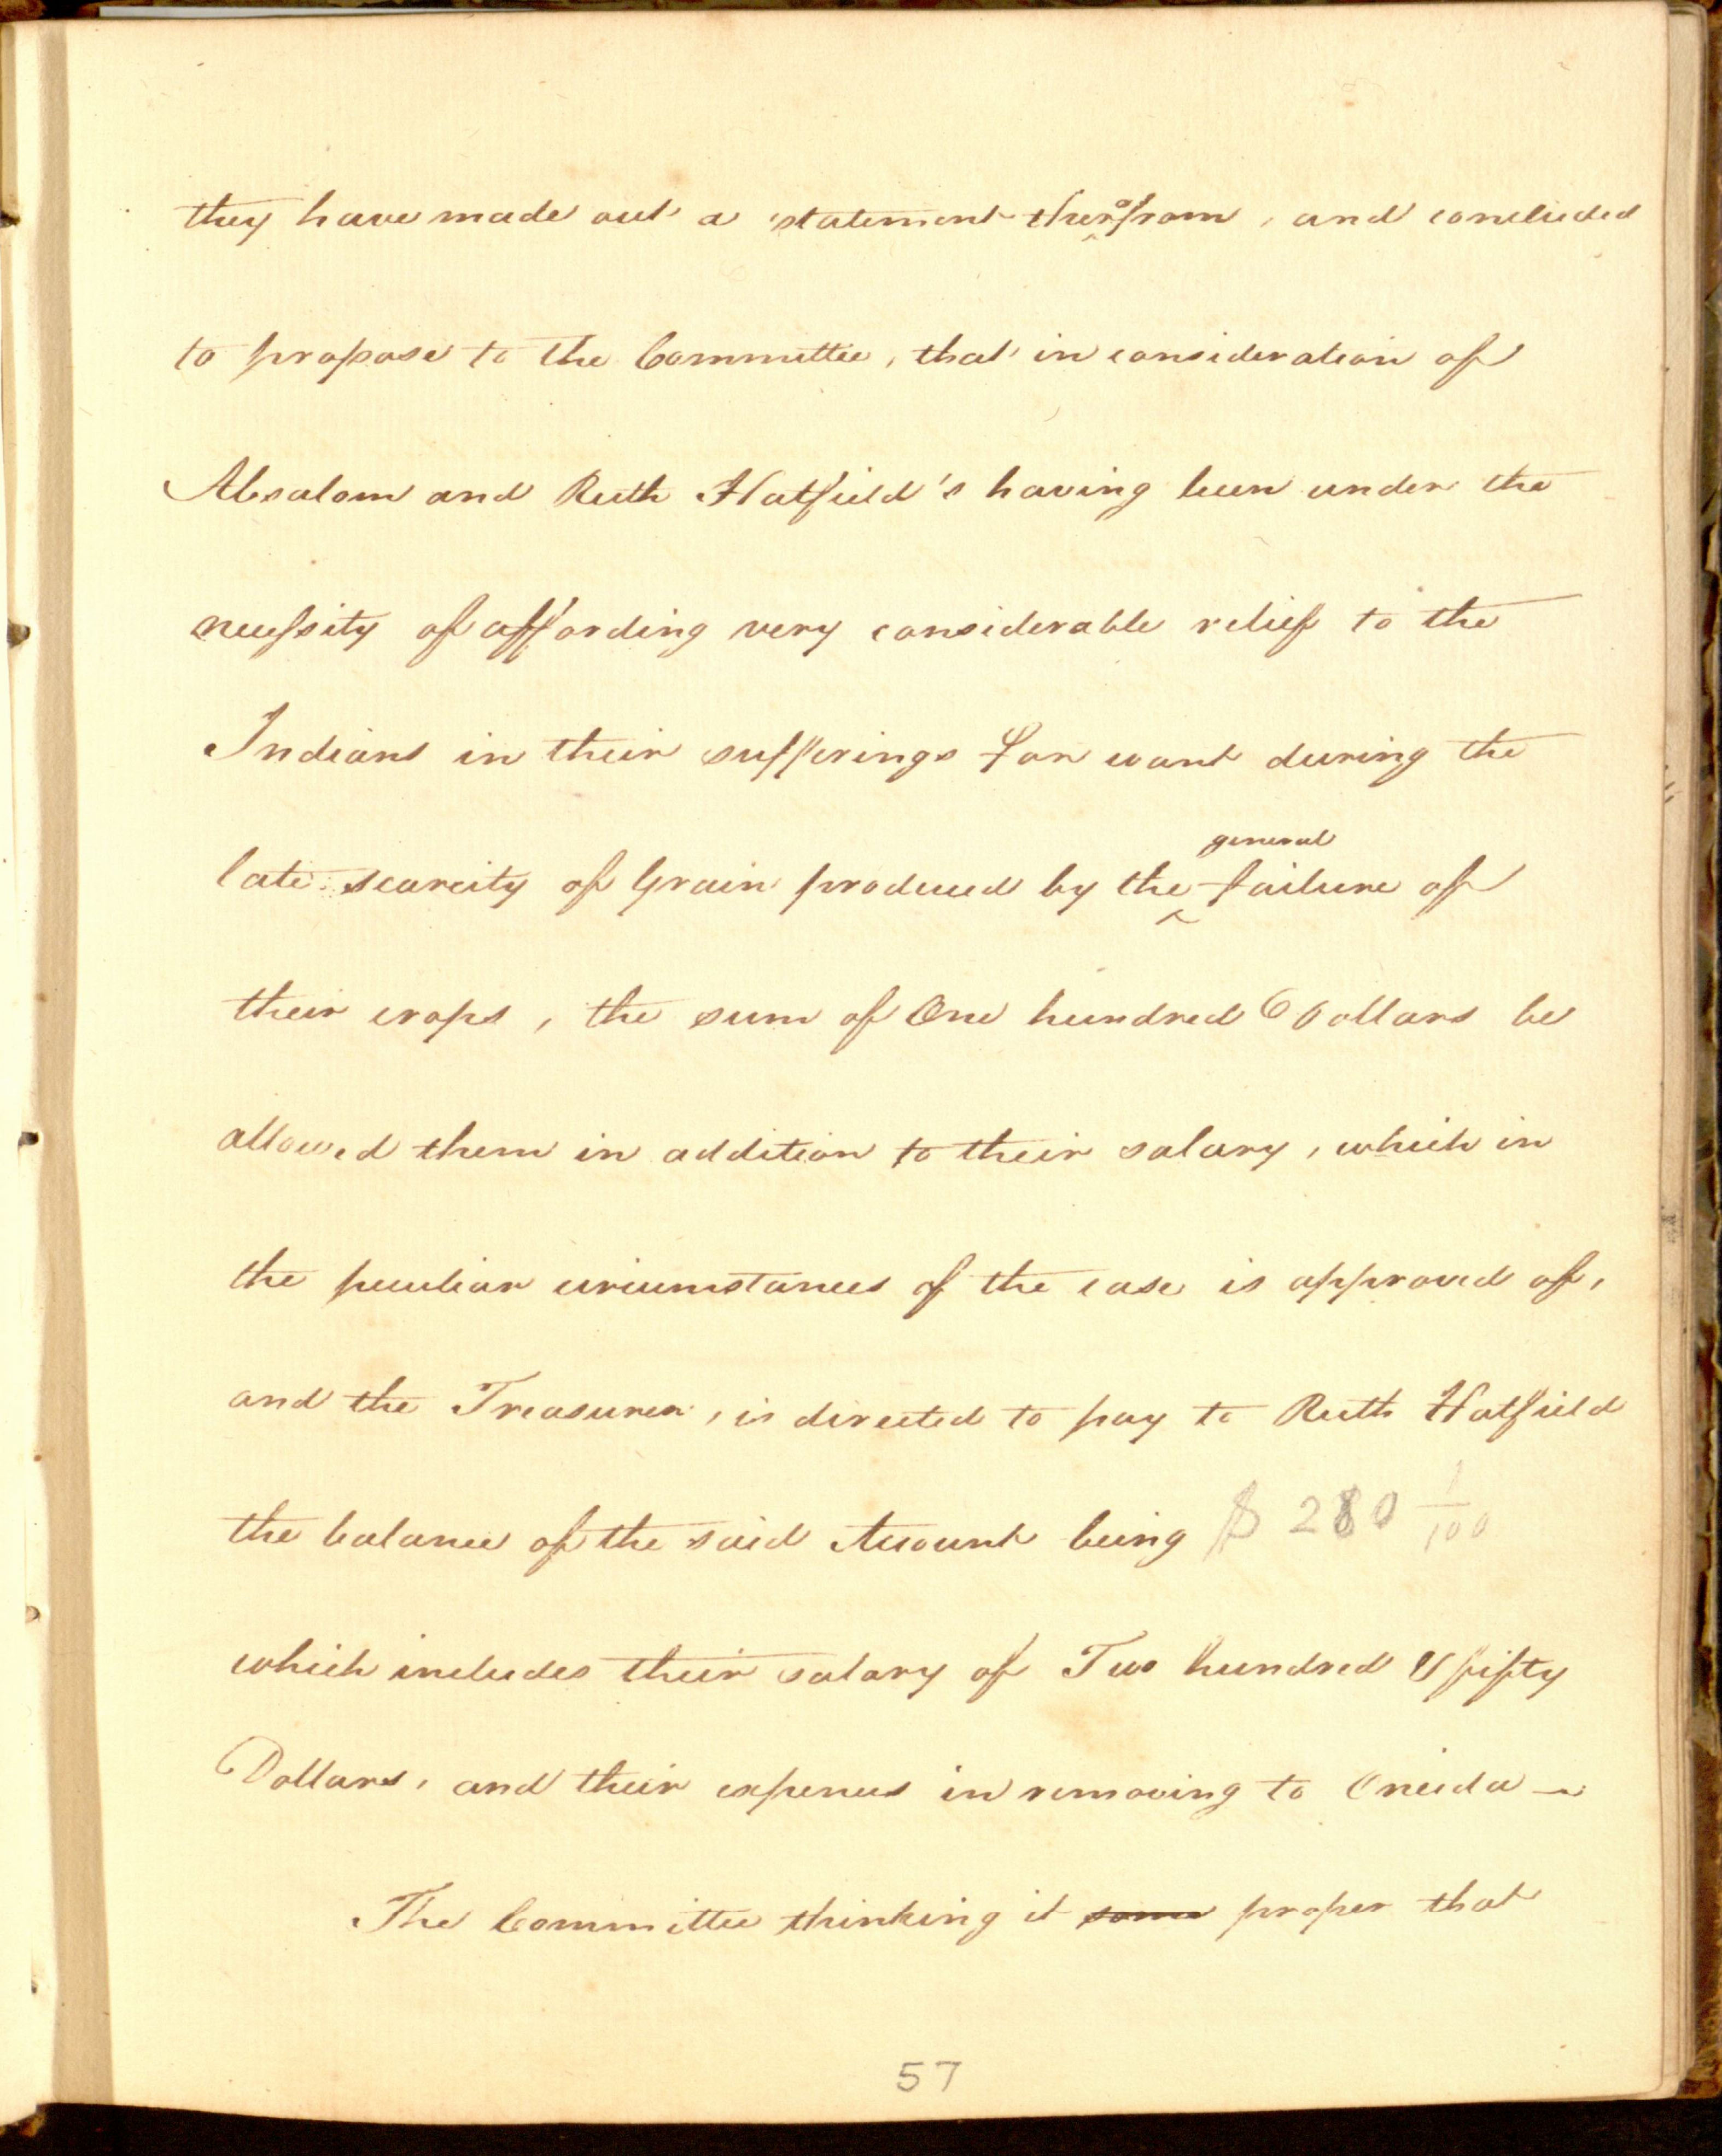 they have made out a statement therefrom, and concluded
to propose to the Committee, that in consideration of
Absalom and Ruth Hatfield's having been under the
necessity of affording very considerable relief to the
Indians in their sufferings for want during the
late scarcity of Grain produced by the general failure of
their crops, the sum of One hundred Dollars be
allowed them in addition to their salary, which in
the peculiar circumstances of the case is approved of,
and the Treasurer, is directed to pay to Ruth Hatfield
the balance of the said Account being $ 280 1/100
which includes their salary of Two hundred & fifty
Dollars, and their expences in removing to Oneida —
The Committee thinking it some proper that
57